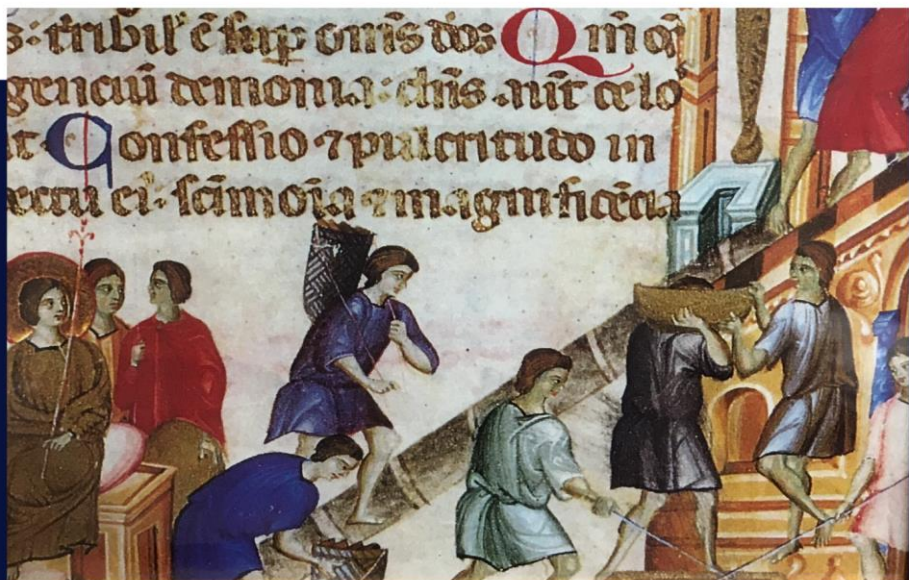 s: tribil' ē sup om̄s dos Qm̄ oꝫ
genciū demonia: dn̄s aūt celo
it Confessio ⁊ pulcritudo in
ectu ei: sc̄imoīa ⁊ magnificēcia